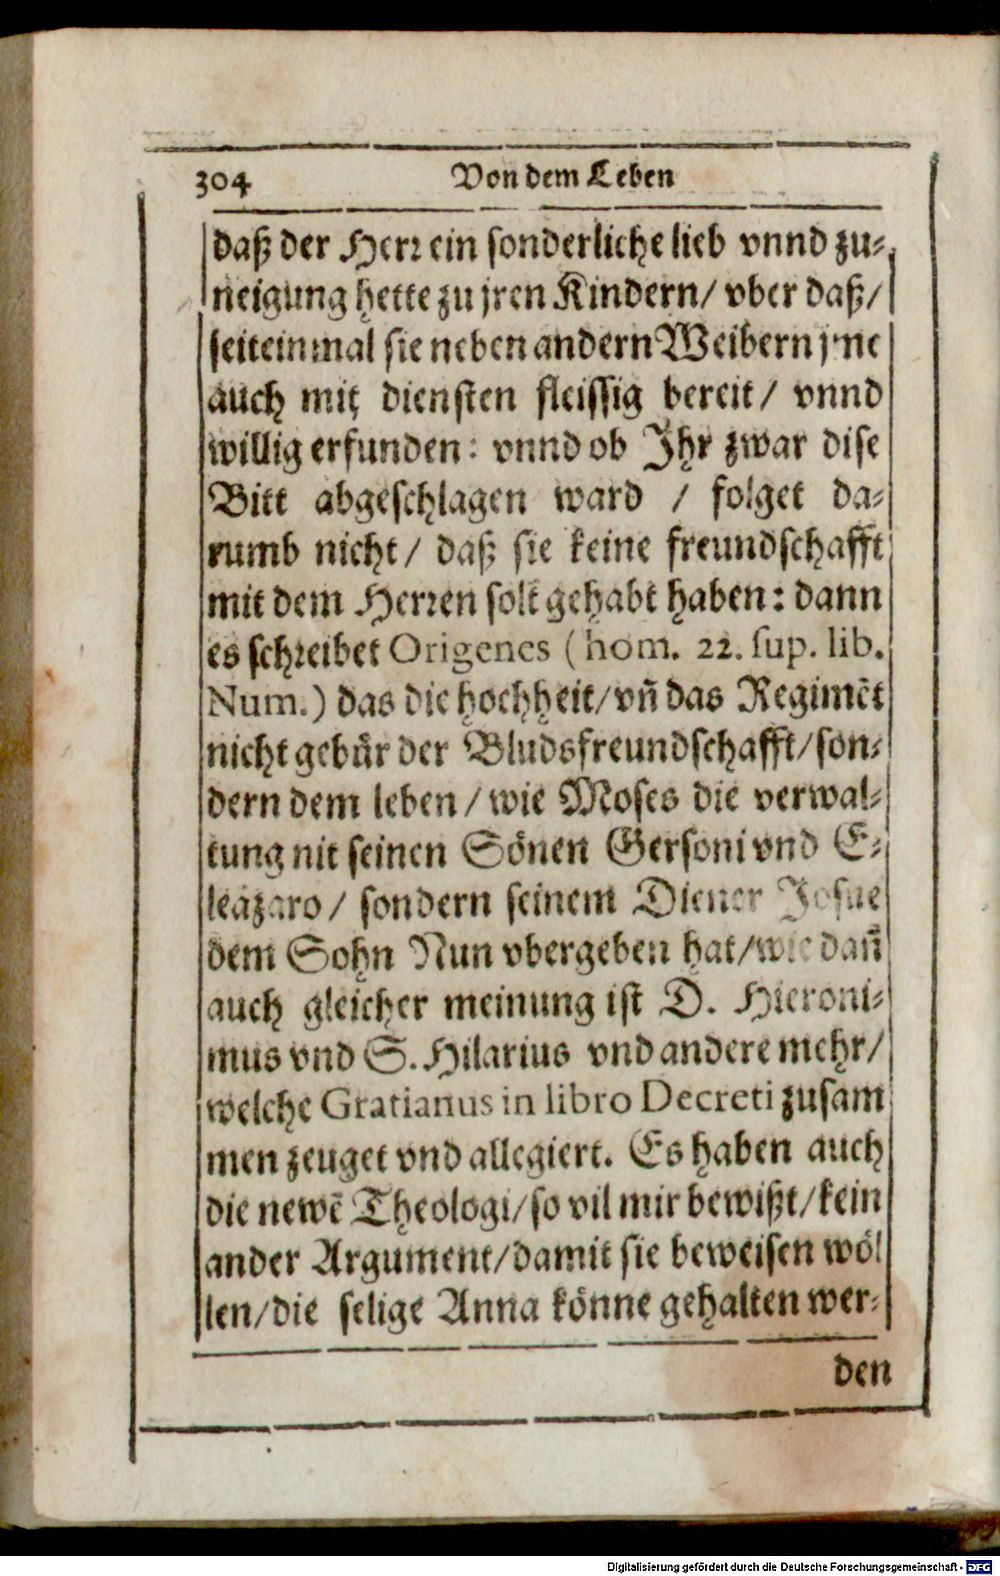 304 Von dem Leben
daß der Herr ein sonderliche lieb vnnd zu-
neigung hette zu jren Kindern/ vber daß/
seiteinmal sie neben andern Weibern jme
auch mit diensten fleissig bereit/ vnnd
willig erfunden: vnnd ob Ihr zwar dise
Bitt abgeschlagen ward / folget da-
rumb nicht/ daß sie keine freundschafft
mit dem Herren solt gehabt haben: dann
es schreibet Origenes (hom. 22. sup. lib.
Num.) das die hochheit/ vñ das Regimẽt
nicht gebür der Bludsfreundschafft/ son-
dern dem leben/ wie Moses die verwal-
tung nit seinen Sönen Gersoni vnd E-
leazaro/ sondern seinem Diener Josue
dem Sohn Nun vbergeben hat/ wie dañ
auch gleicher meinung ist D. Hieroni-
mus vnd S. Hilarius vnd andere mehr/
welche Gratianus in libro Decreti zusam
men zeuget vnd allegiert. Es haben auch
die newẽ Theologi/ so vil mir bewißt/ kein
ander Argument/ damit sie beweisen wöl
len/ die selige Anna könne gehalten wer-
den
Digitalisierung gefördert durch die Deutsche Forschungsgemeinschaft - DFG